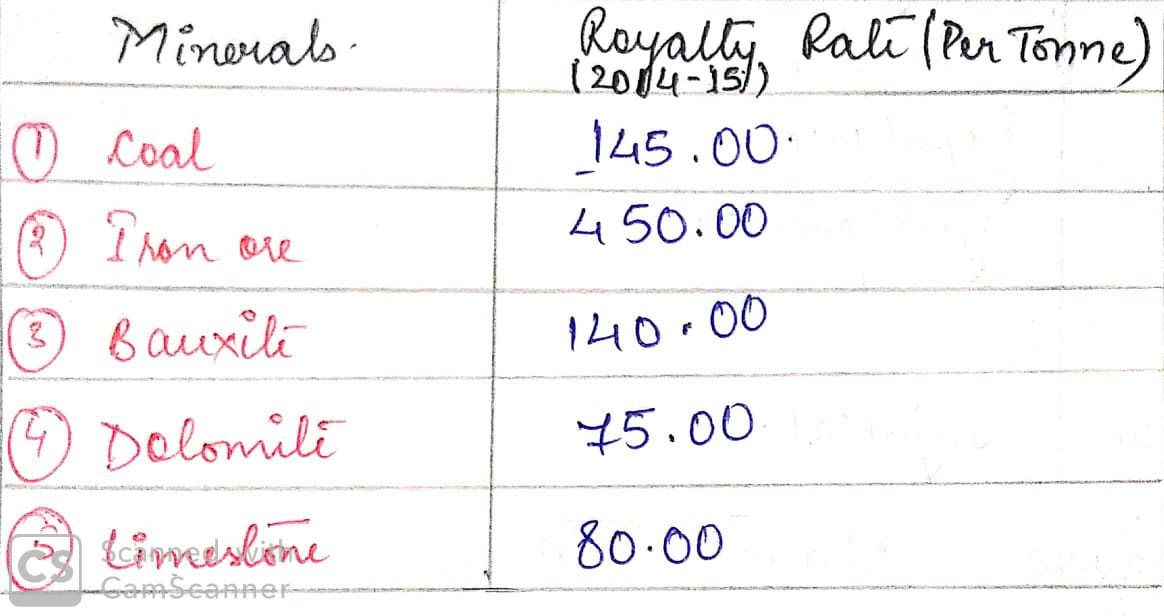 Minerals. Royalty Rate (Per Tonne)
(2014-15)
① Coal 145.00
② Iron ore 450.00
③ Bauxite 140.00
④ Dolomite 75.00
⑤ Limestone 80.00
CS Scanned with
CamScanner